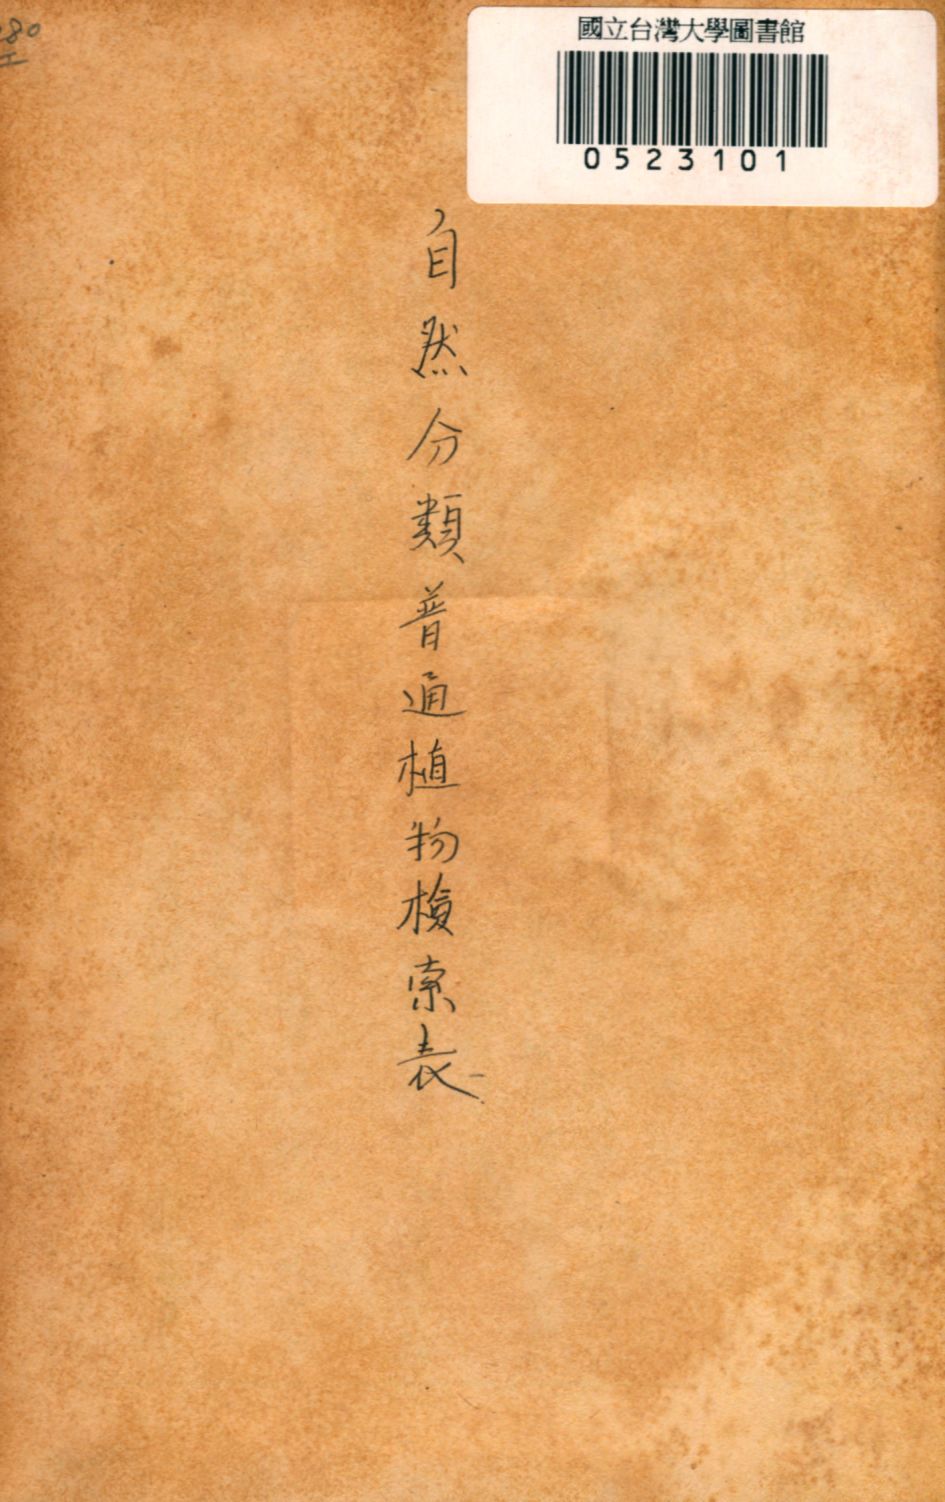 國立台灣大學圖書館
0523101
自然分類普通植物検索表